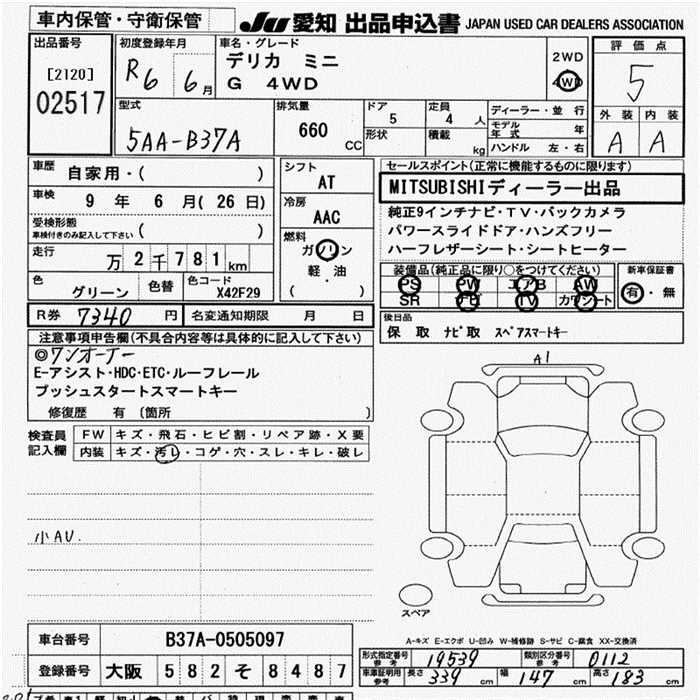 車内保管・守衛保管
JU 愛知 出品申込書 JAPAN USED CAR DEALERS ASSOCIATION
出品番号
[2120]
02517
初度登録年月
R6 6月
車名・グレード
デリカ ミニ
G 4WD
2WD
4WD
評価点
5
外装 内装
A A
型式
5AA-B37A
排気量
660 CC
ドア
5
定員
4 人
形状
積載
kg
ディーラー・並行
モデル年式 年
ハンドル 左・右
車歴
自家用・( )
車検
9 年 6 月 ( 26 日)
受検形態
車検付きのみ記入して下さい ( )
走行
万 2 千 7 8 1 km
色
グリーン
色替
色コード
X42F29
シフト
AT
冷房
AAC
燃料
ガソリン
軽・油
( )
セールスポイント(正常に機能するものに限ります)
MITSUBISHIディーラー出品
純正9インチナビ・TV・バックカメラ
パワースライドドア・ハンズフリー
ハーフレザーシート・シートヒーター
装備品(純正品に限り○をつけてください)
PS PW エアB AW
SR ナビ TV カワシート
新車保証書
有・無
R券 7340 円
名変通知期限 月 日
後日品
保 取 ナビ取 スペアスマートキー
注意事項申告欄(不具合内容等は具体的に記入して下さい)
◎ワンオーナー
E-アシスト・HDC・ETC・ルーフレール
プッシュスタートスマートキー
修復歴 有 〔箇所 〕
検査員
記入欄
FW キズ・飛石・ヒビ割・リペア跡・X要
内装 キズ・汚レ・コゲ・穴・スレ・キレ・破レ
小AU.
A1
スペア
A-キズ E-エクボ U-凹み W-補修跡 S-サビ C-腐食 XX-交換済
車台番号 B37A-0505097
登録番号 大阪 5 8 2 そ 8 4 8 7
型式指定番号 参考 19539
類別区分番号 参考 0112
車庫証明用 参考 長さ 339 cm 幅 147 cm 高さ 183 cm